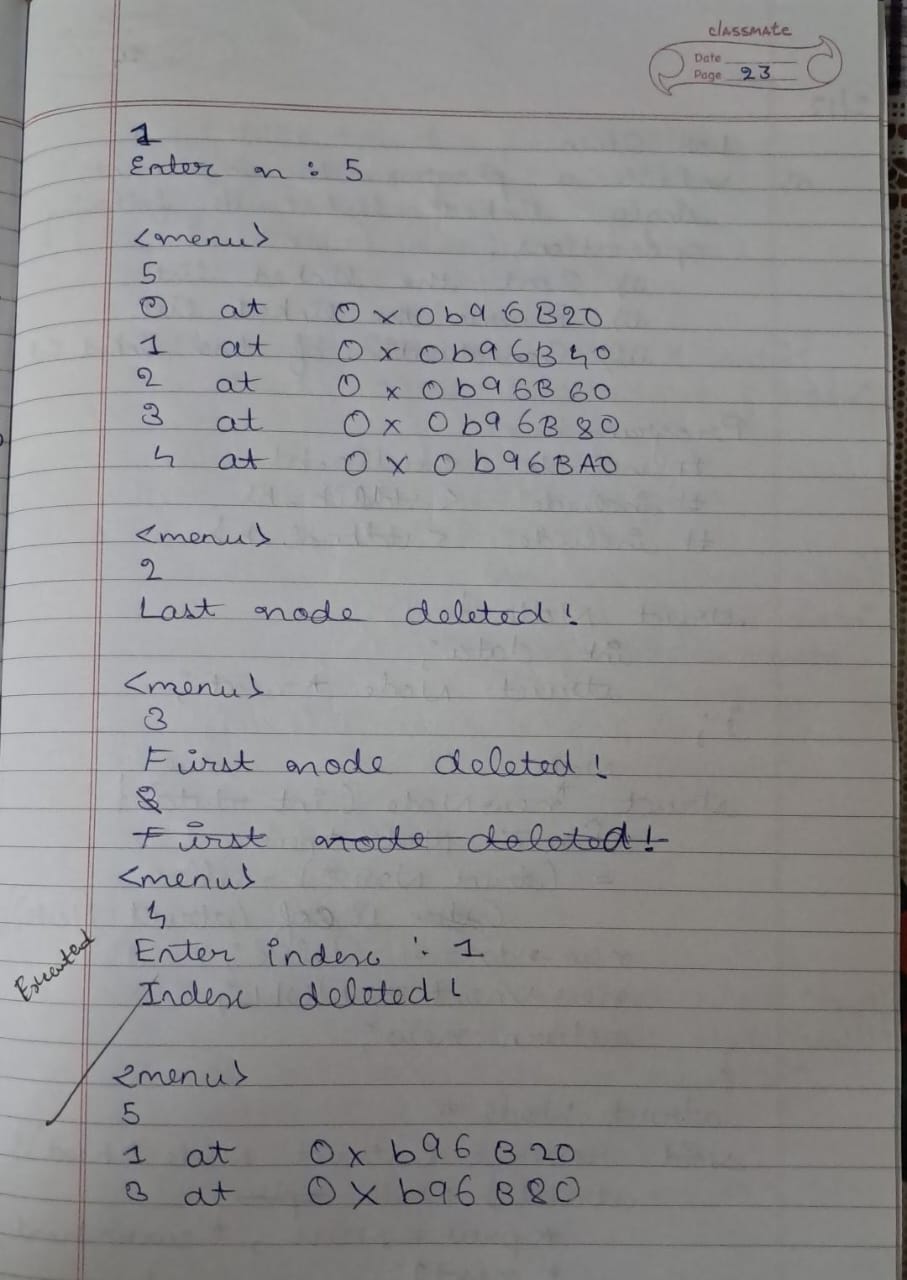 classmate
Date
Page 23
1
Enter n : 5
<menu>
5
0 at 0x0b96B20
1 at 0x0b96B40
2 at 0x0b96B60
3 at 0x0b96B80
4 at 0x0b96BA0
<menu>
2
Last node deleted!
<menu>
3
First node deleted!
First node deleted!
<menu>
4
Enter index : 1
Executed
Index deleted!
<menu>
5
1 at 0xb96B20
3 at 0xb96B80